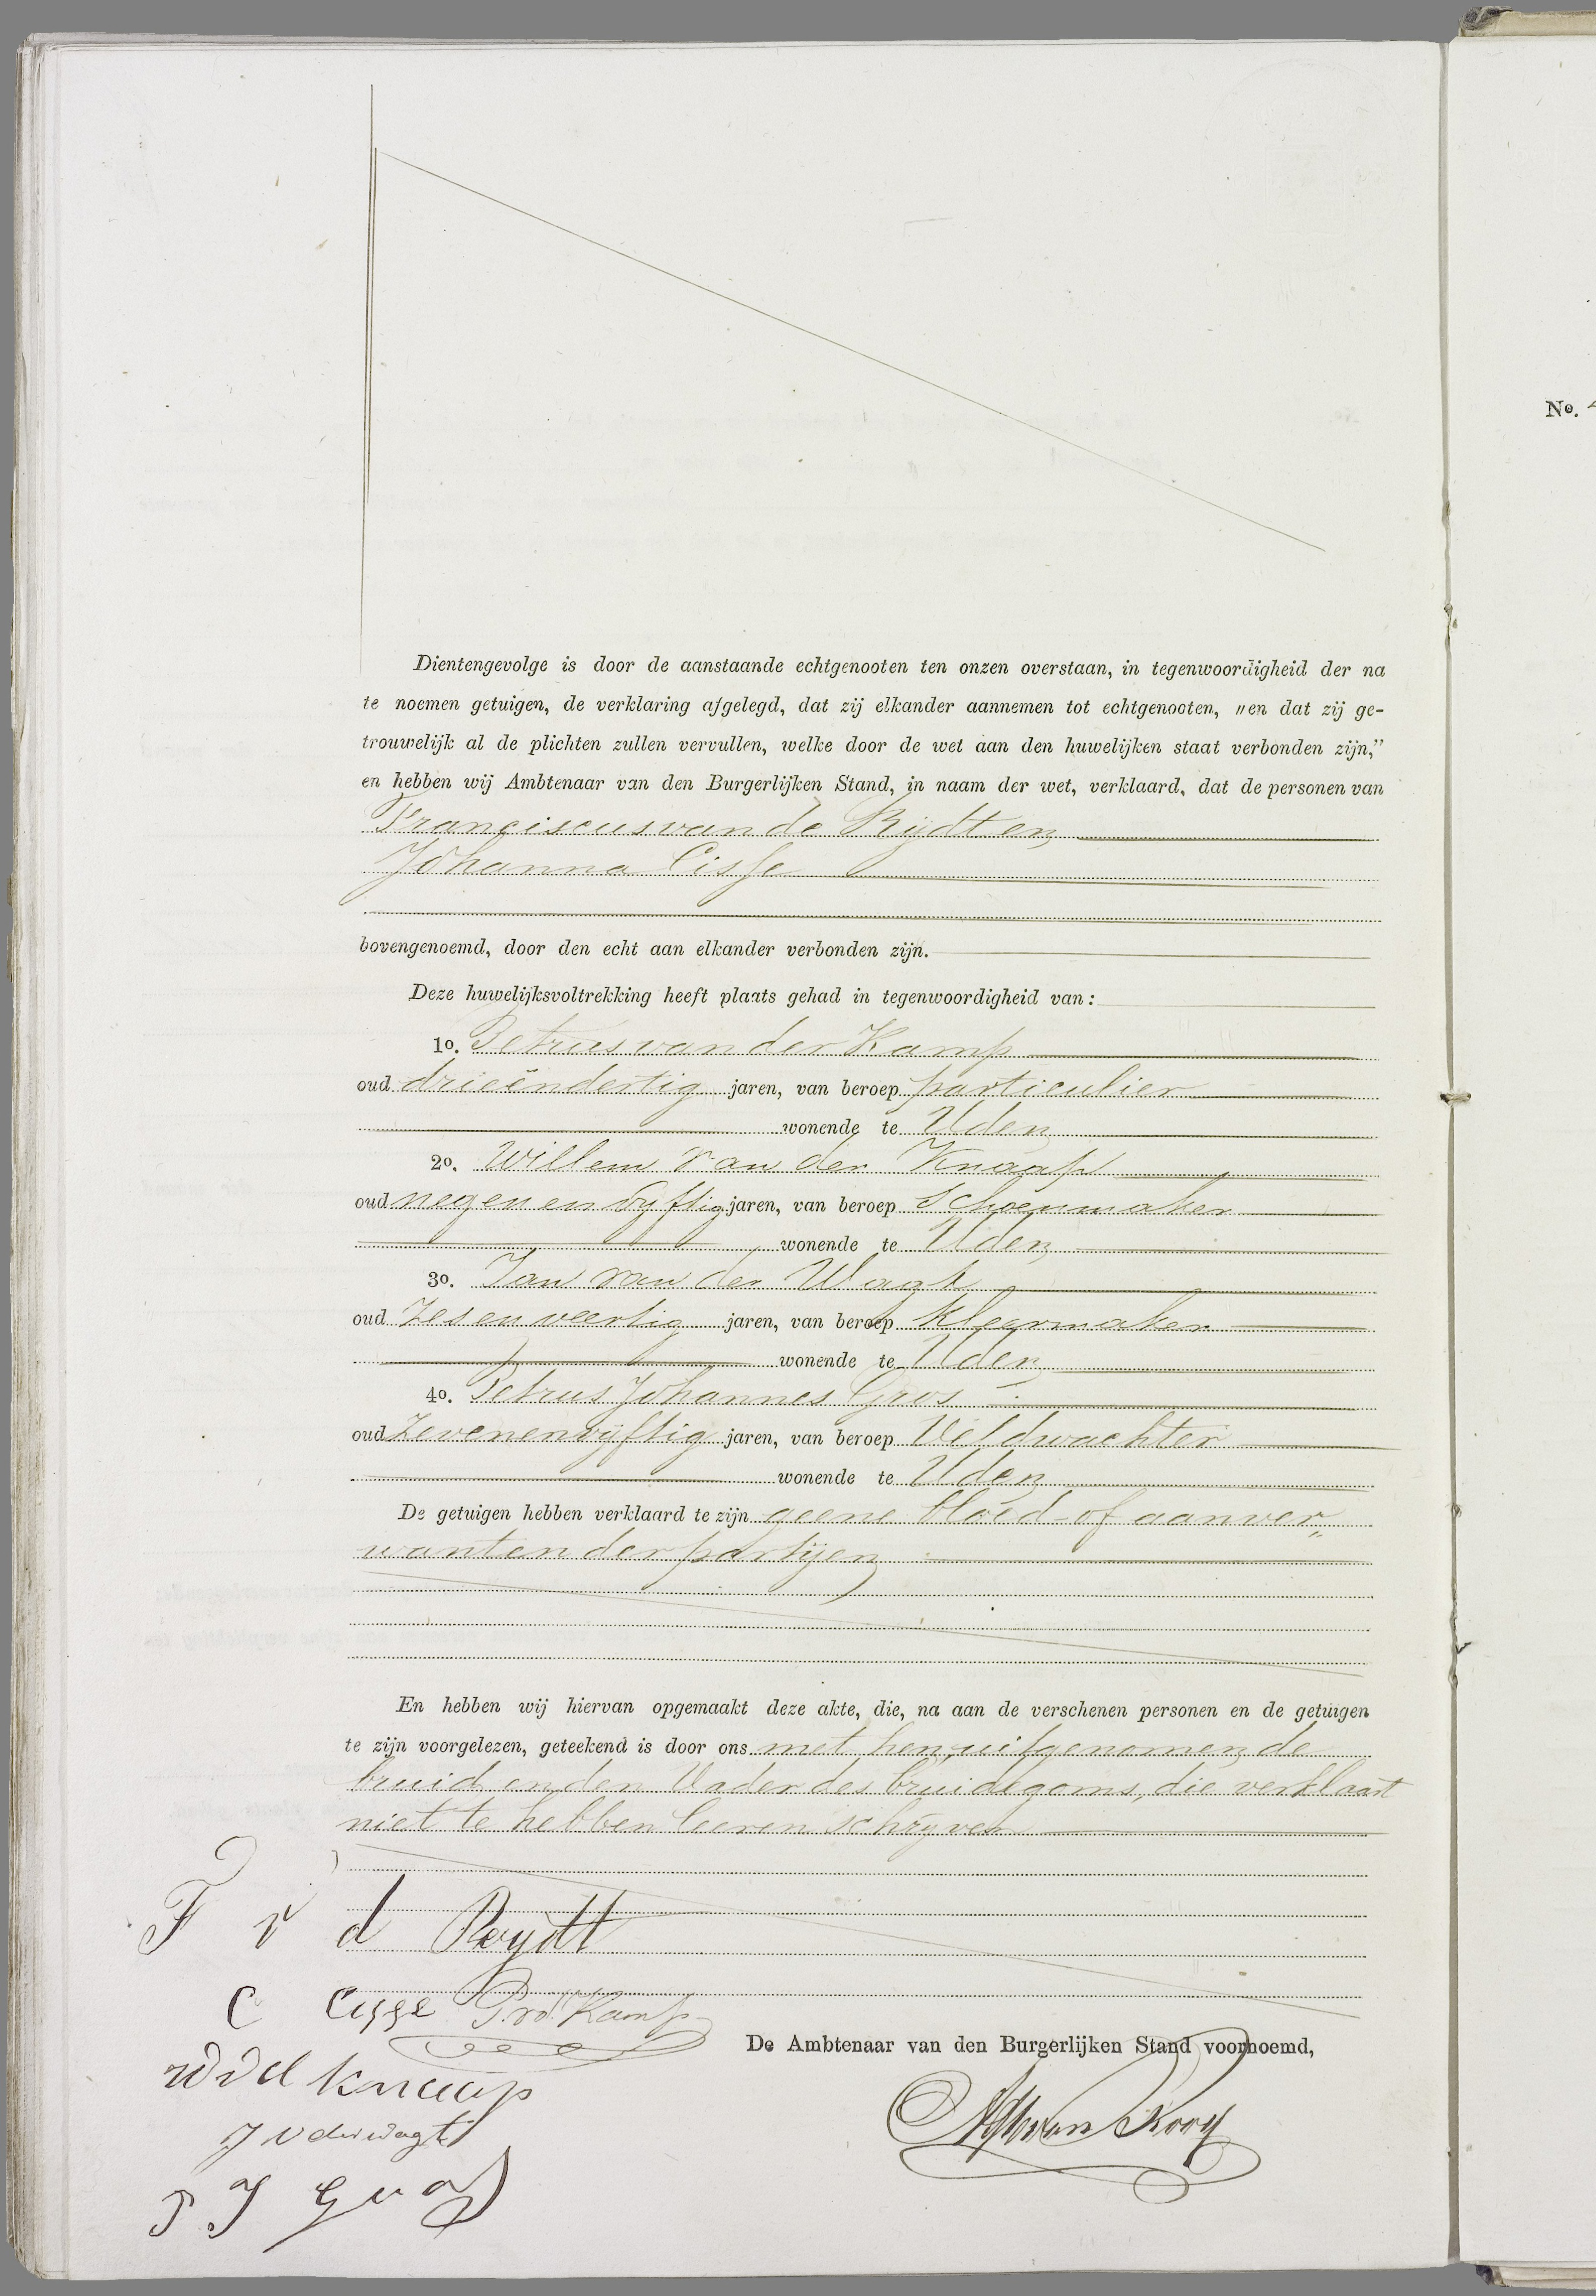 No.
Dientengevolge is door de aanstaande echtgenooten ten onzen overstaan, in tegenwoordigheid der na
te noemen getuigen, de verklaring afgelegd, dat zij elkander aannemen tot echtgenooten, „en dat zij ge-
trouwelijk al de plichten zullen vervullen, welke door de wet aan den huwelijken staat verbonden zijn,”
en hebben wij Ambtenaar van den Burgerlijken Stand, in naam der wet, verklaard, dat de personen van
Franciscus van de Rijdt en
Johanna Cisse
bovengenoemd, door den echt aan elkander verbonden zijn.
Deze huwelijksvoltrekking heeft plaats gehad in tegenwoordigheid van:
1o. Petrus van der Kamp
oud drieëndertig jaren, van beroep particulier
wonende te Uden
2o. Willem van der Knaap
oud negen en vyftig jaren, van beroep Schoenmaker
wonende te Uden
3o. Jan van der Wagt
oud Zes en veertig jaren, van beroep kleermaker
wonende te Uden
4o. Petrus Johannes Gros
oud Zevenenvijftig jaren, van beroep Veldwachter
wonende te Uden
De getuigen hebben verklaard te zijn geene bloed- of aanver„
wanten der partijen
En hebben wij hiervan opgemaakt deze akte, die, na aan de verschenen personen en de getuigen
te zijn voorgelezen, geteekend is door ons met hen, uitgenomen de
bruid en den Vader des bruidegoms, die verklaart
niet te hebben leeren schrijven
F v d Reydt
C Cisse P. v. d. Kamp
W v d knaap
De Ambtenaar van den Burgerlijken Stand voornoemd,
J v der wagt
van Kooy
P J Gros